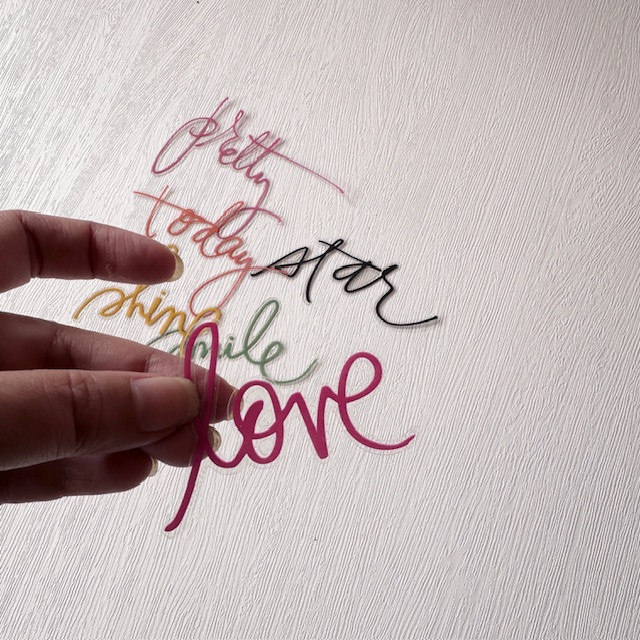 pretty
today
star
shine
smile
love